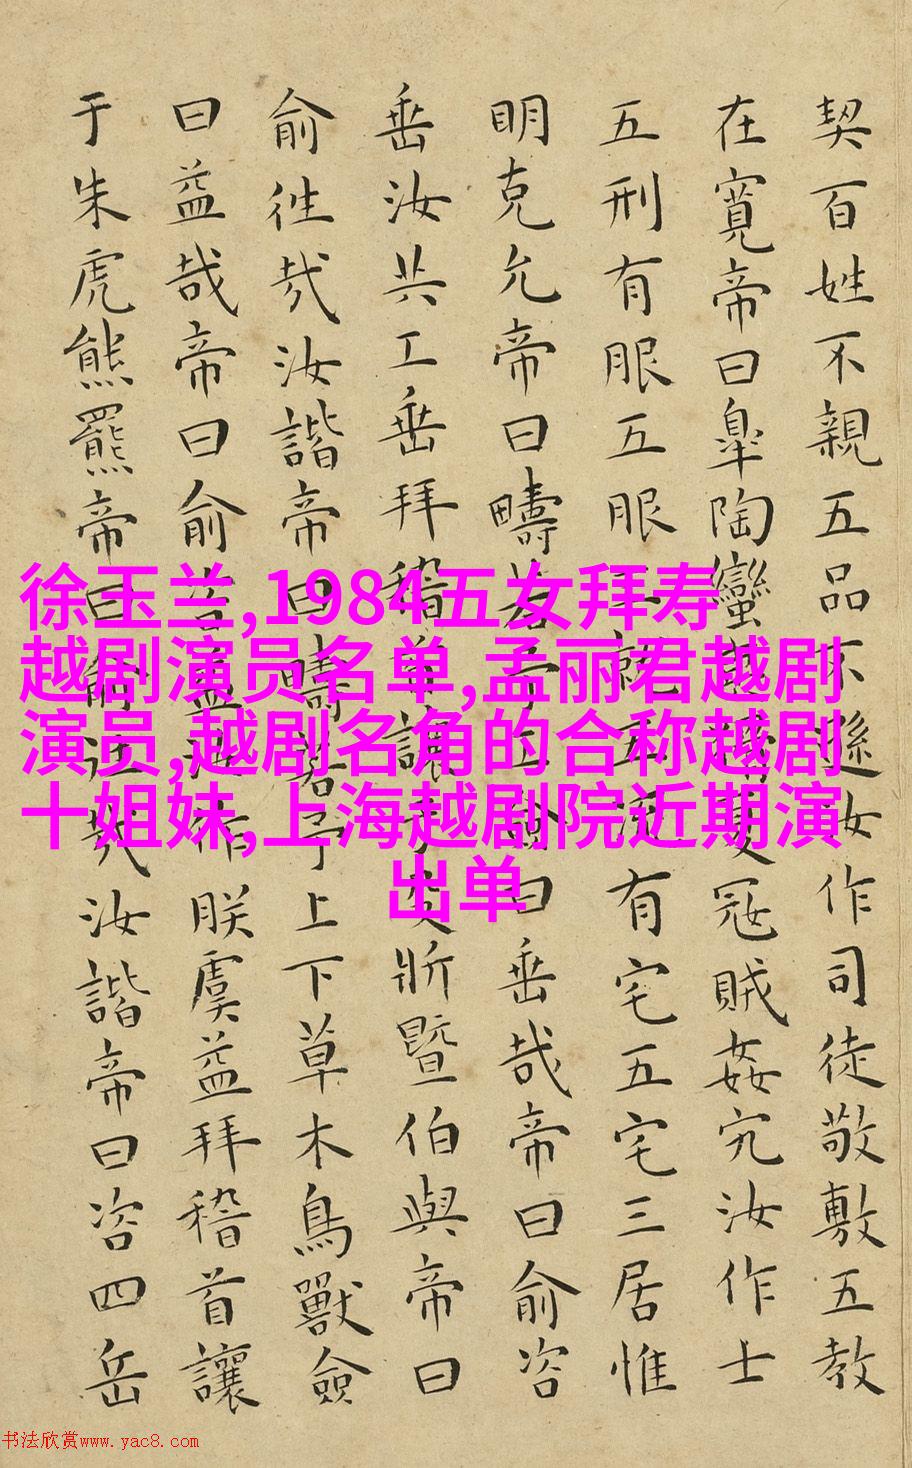 契百姓不親五品不遜汝作司徒敬敷五教
在寬帝曰臯陶蠻夷猾夏冦賊姦宄汝作士
五刑有服五服三就五流有宅五宅三居惟
明克允帝曰疇若予工僉曰垂哉帝曰俞咨
垂汝共工垂拜稽首讓于殳斨暨伯與帝曰
俞徃哉汝諧帝曰疇若予上下草木鳥獸僉
曰益哉帝曰俞咨益汝作朕虞益拜稽首讓
于朱虎熊羆帝曰俞徃哉汝諧帝曰咨四岳
徐玉兰,1984五女拜寿
越剧演员名单,孟丽君越剧
演员,越剧名角的合称越剧
十姐妹,上海越剧院近期演
出单
书法欣赏www.yac8.com